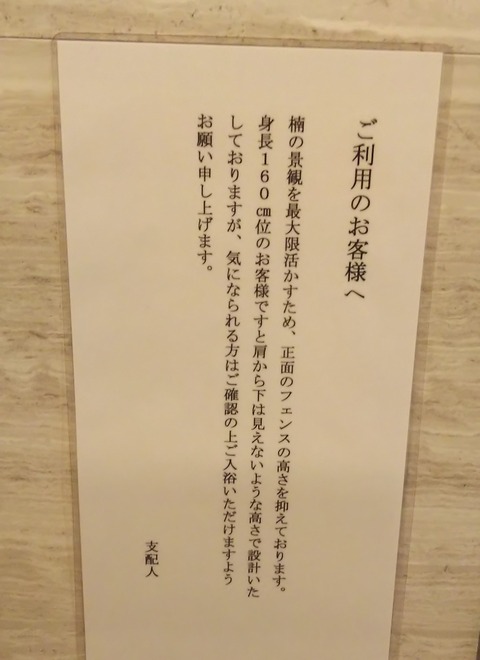 ご利用のお客様へ
楠の景観を最大限活かすため、正面のフェンスの高さを抑えております。
身長１６０㎝位のお客様ですと肩から下は見えないような高さで設計いた
しておりますが、気になられる方はご確認の上ご入浴いただけますよう
お願い申し上げます。
支配人